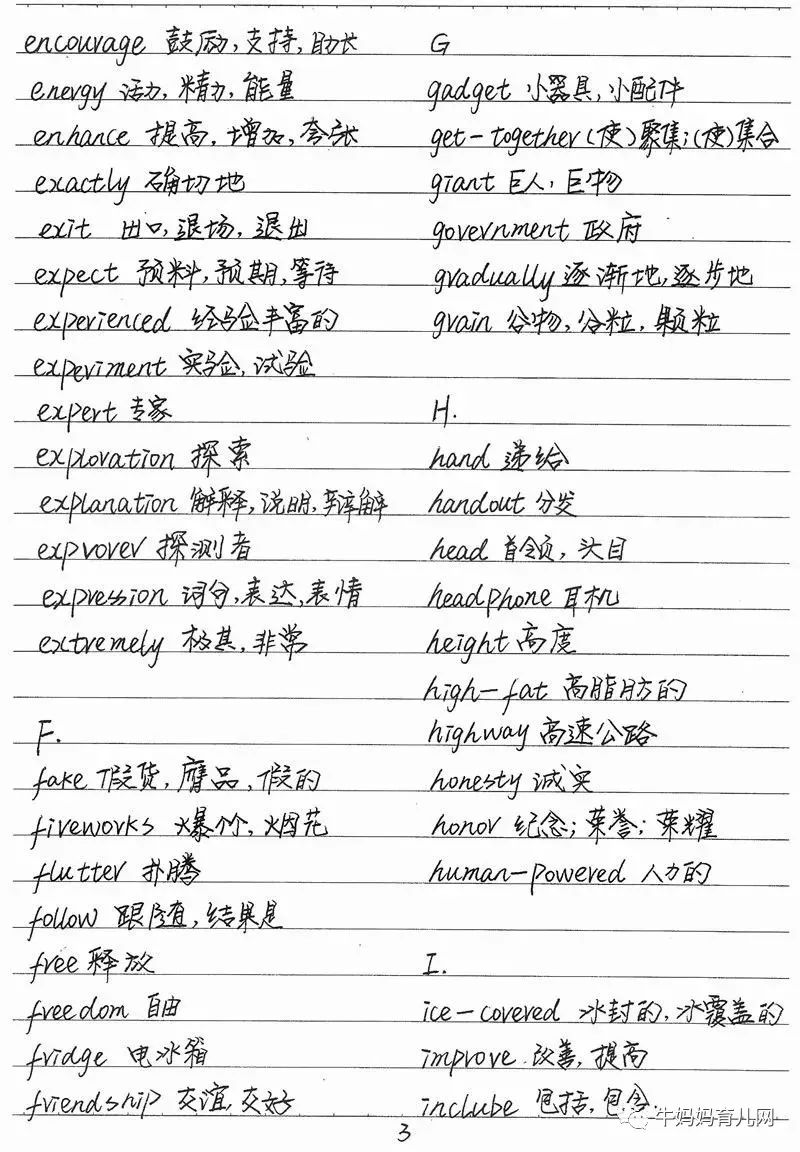 encourage 鼓励,支持,助长
energy 活力,精力,能量
enhance 提高,增加,夸张
exactly 确切地
exit 出口,退场,退出
expect 预料,预期,等待
experienced 经验丰富的
experiment 实验,试验
expert 专家
exploration 探索
explanation 解释,说明,辩解
exprorer 探测者
expression 词句,表达,表情
extremely 极其,非常
F.
fake 假货,赝品,假的
fireworks 爆竹,烟花
flutter 扑腾
follow 跟随,结果是
free 释放
freedom 自由
fridge 电冰箱
friendship 友谊,友好
G
gadget 小器具,小配件
get-together (使)聚集;(使)集合
giant 巨人,巨物
government 政府
gradually 逐渐地,逐步地
grain 谷物,谷粒,颗粒
H.
hand 递给
handout 分发
head 首领,头目
headphone 耳机
height 高度
high-fat 高脂肪的
highway 高速公路
honesty 诚实
honor 纪念;荣誉;荣耀
human-powered 人力的
I.
ice-covered 冰封的,冰覆盖的
improve 改善,提高
inclube 包括,包含
3
牛妈妈育儿网